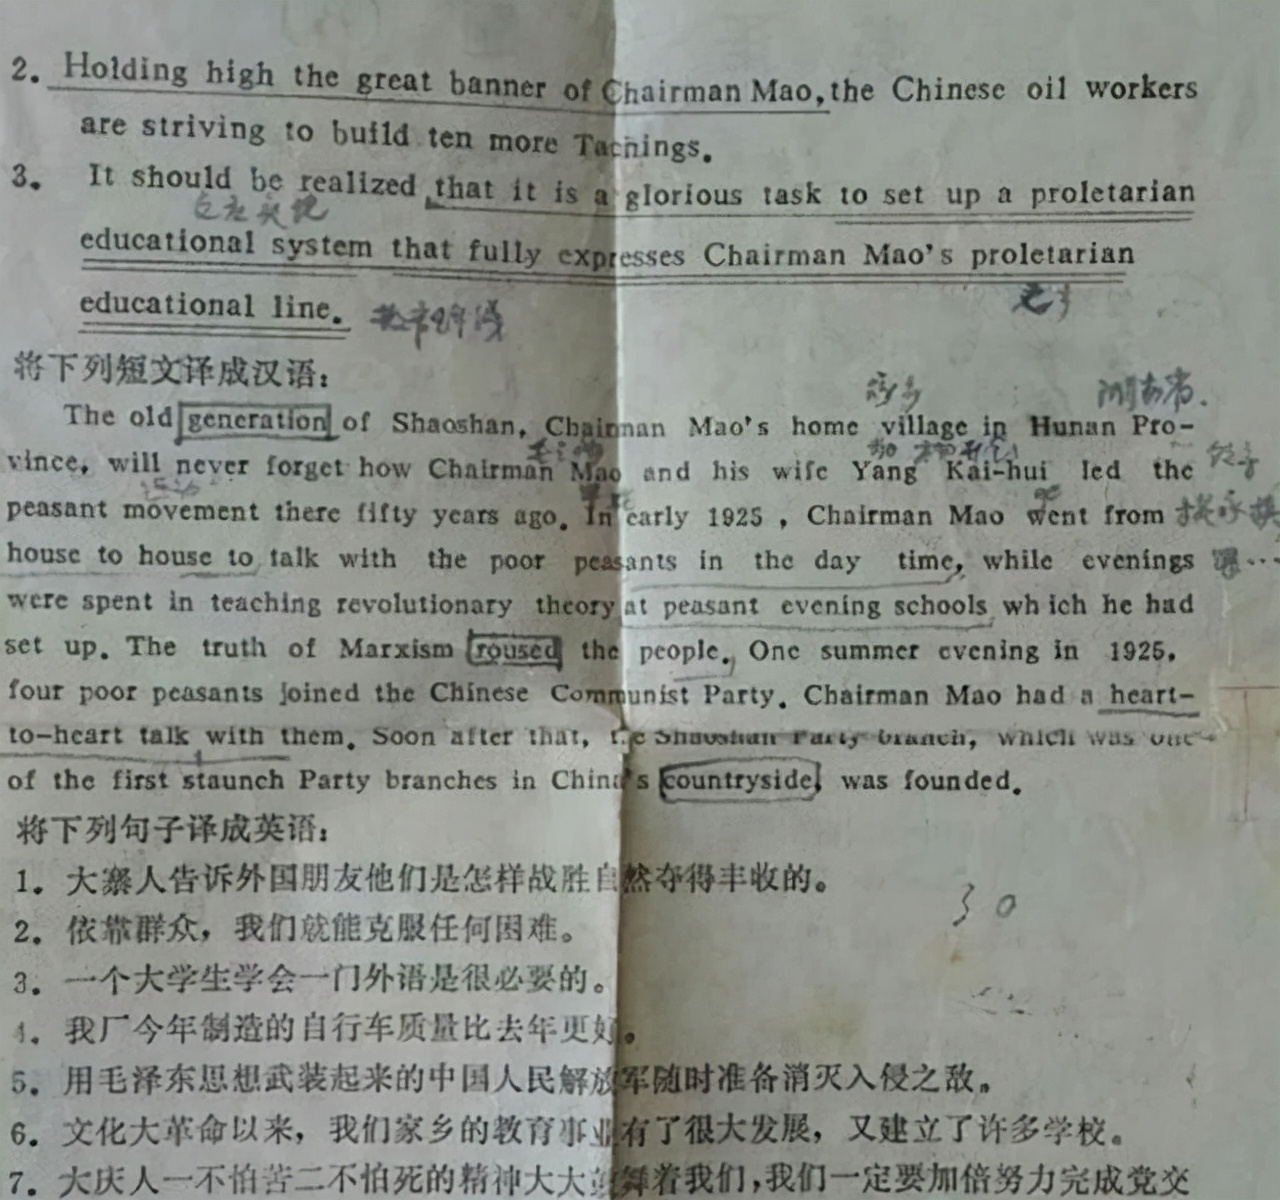 2. Holding high the great banner of Chairman Mao, the Chinese oil workers
are striving to build ten more Tachings.
3. It should be realized that it is a glorious task to set up a proletarian
educational system that fully expresses Chairman Mao's proletarian
educational line.
将下列短文译成汉语：
湖南省.
The old generation of Shaoshan, Chairman Mao's home village in Hunan Pro-
vince, will never forget how Chairman Mao and his wife Yang Kai-hui led the
peasant movement there fifty years ago. In early 1925 , Chairman Mao went from
house to house to talk with the poor peasants in the day time, while evenings
were spent in teaching revolutionary theory at peasant evening schools which he had
set up. The truth of Marxism roused the people. One summer evening in 1925,
four poor peasants joined the Chinese Communist Party. Chairman Mao had a heart-
to-heart talk with them. Soon after that, the Shaoshan Party branch, which was one
of the first staunch Party branches in China's countryside, was founded.
将下列句子译成英语：
1. 大寨人告诉外国朋友他们是怎样战胜自然夺得丰收的。
30
2. 依靠群众，我们就能克服任何困难。
3. 一个大学生学会一门外语是很必要的。
4. 我厂今年制造的自行车质量比去年更好。
5. 用毛泽东思想武装起来的中国人民解放军随时准备消灭入侵之敌。
6. 文化大革命以来，我们家乡的教育事业有了很大发展，又建立了许多学校。
7. 大庆人一不怕苦二不怕死的精神大大鼓舞着我们，我们一定要加倍努力完成党交